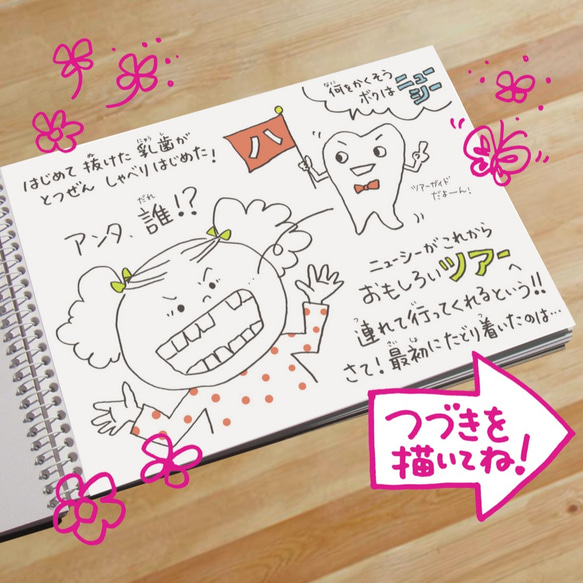 はじめて 抜けた 乳歯が
とつぜん しゃべりはじめた!
アンタ、誰!?
何をかくそう
ボクは ニューシー
ハ
ツアーガイド
だよーん!
ニューシーが これから
おもしろいツアーへ
連れて行ってくれるという!!
さて!最初にたどり着いたのは…
つづきを
描いてね!